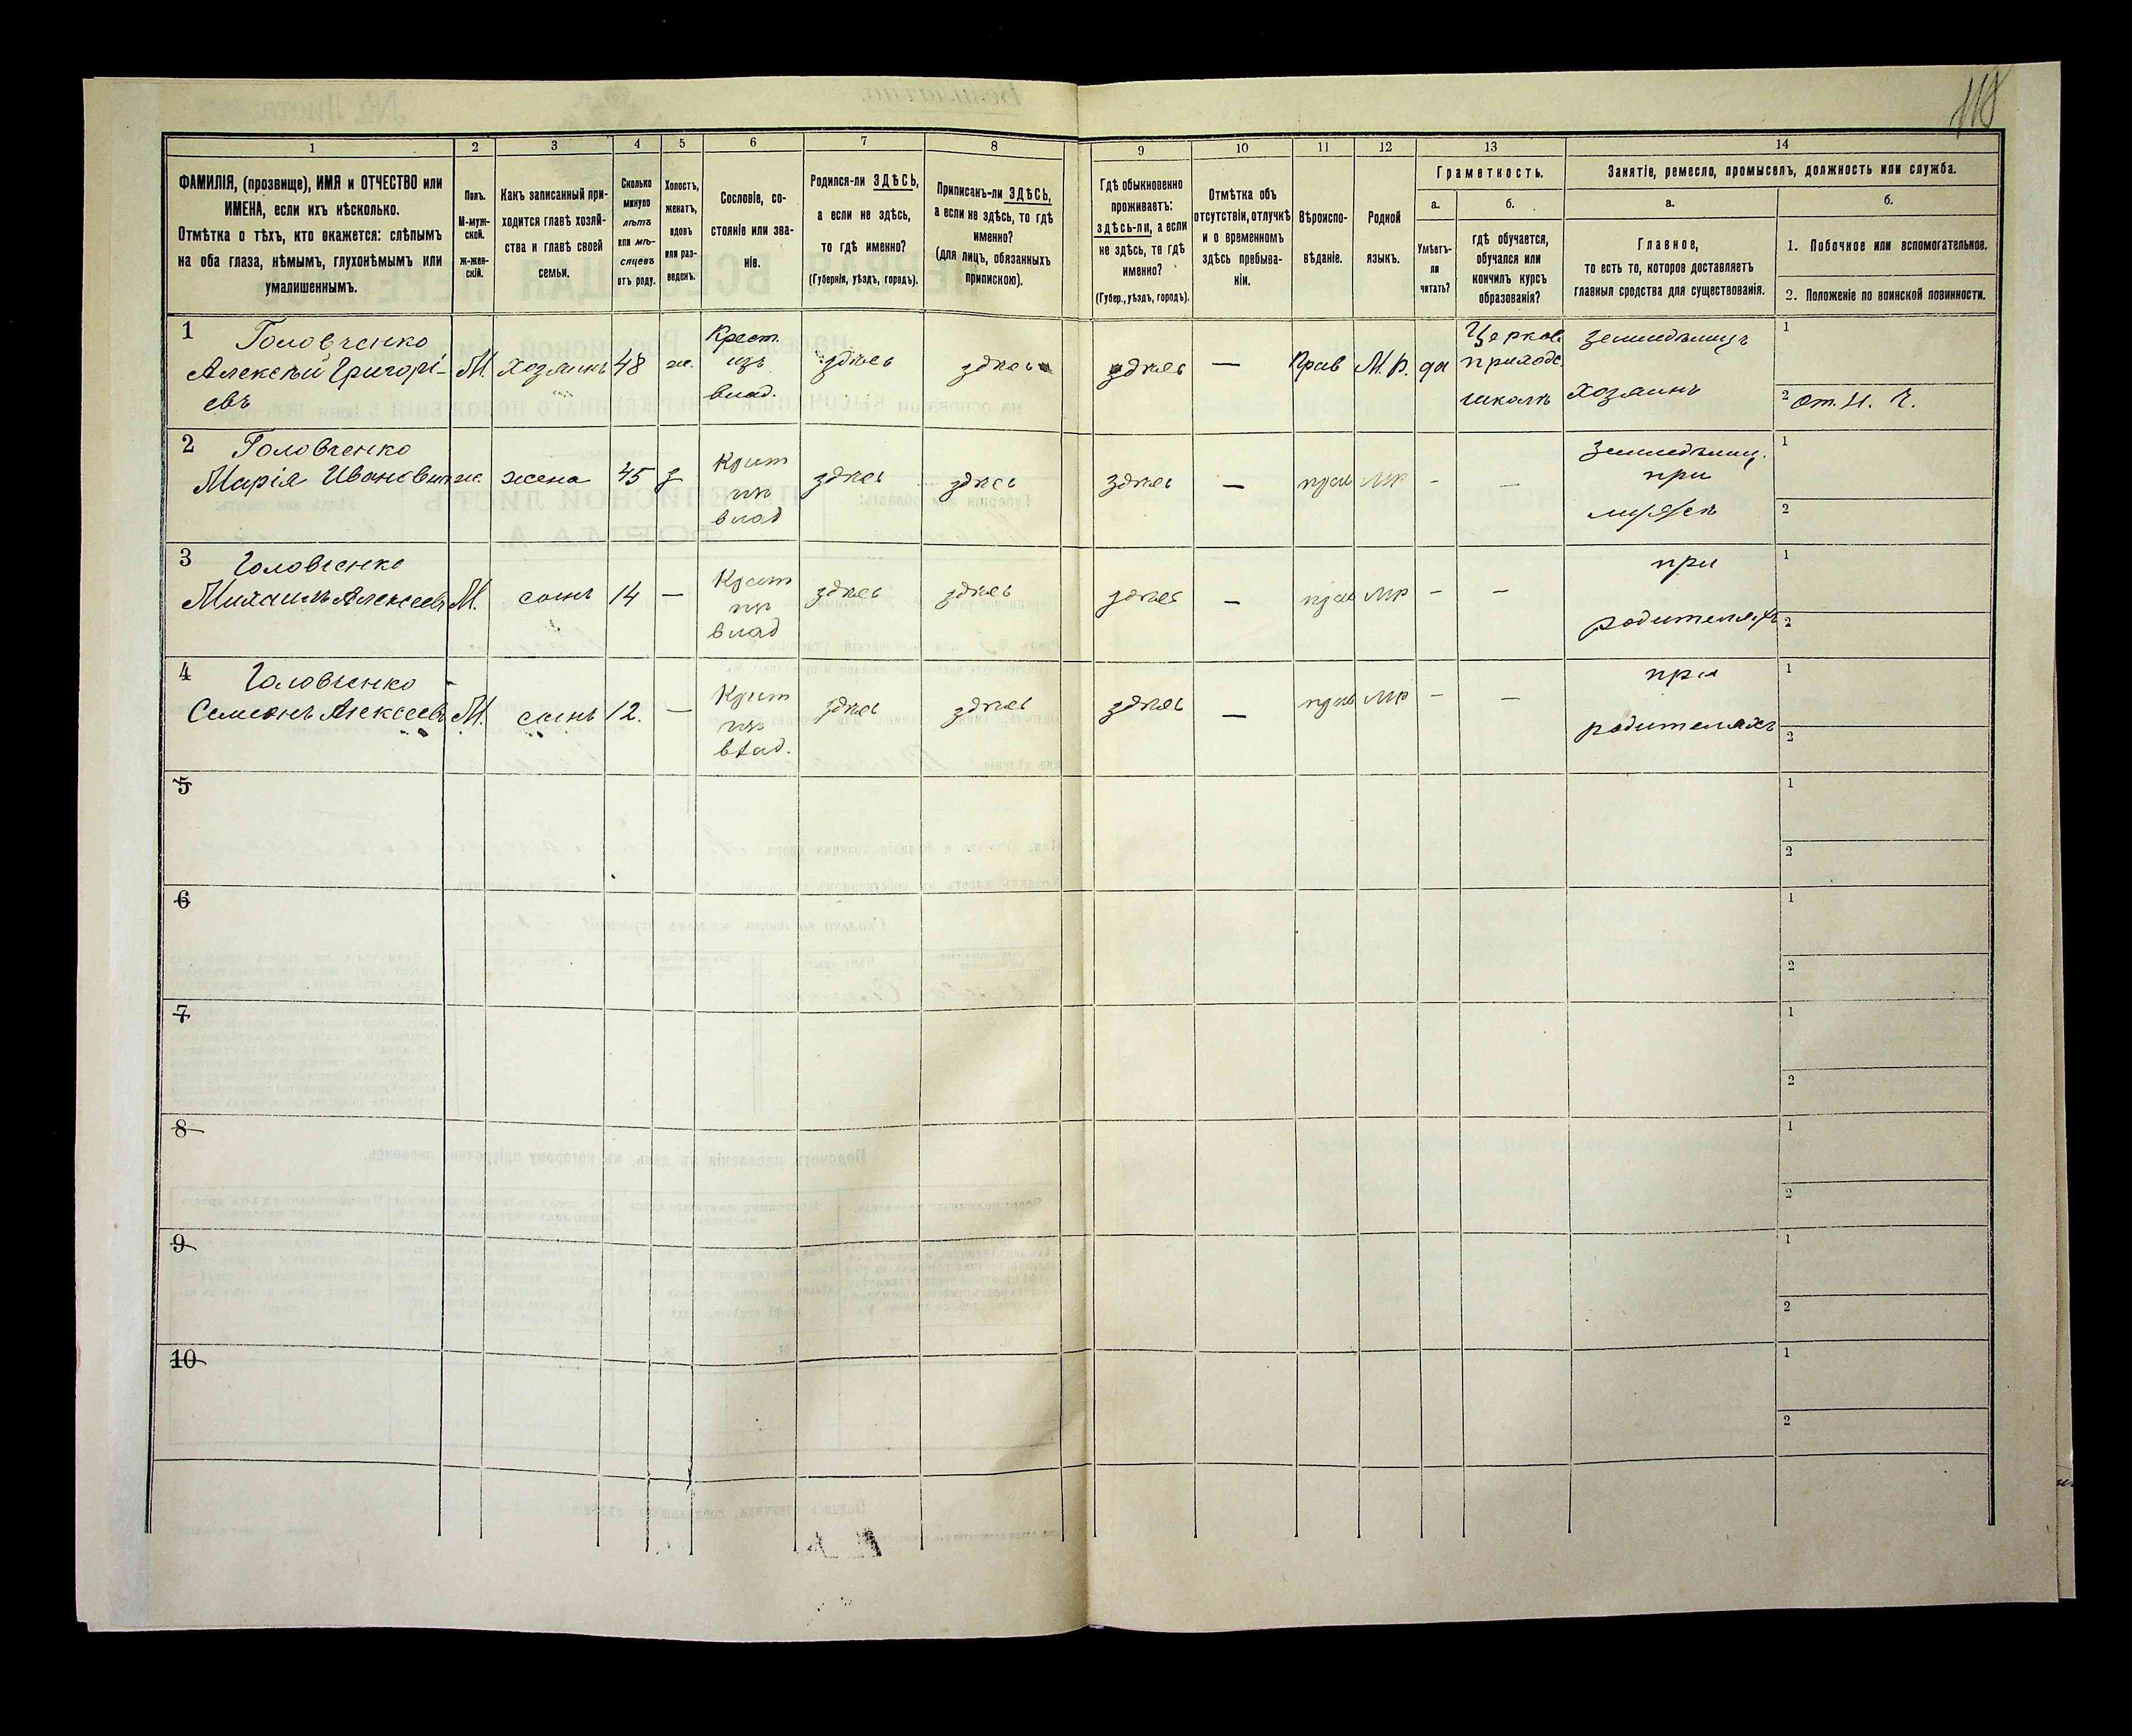 118
1
2
3
4
5
6
7
8
9
10
11
12
13
14
ФАМИЛІЯ, (прозвище), ИМЯ и ОТЧЕСТВО или
ИМЕНА, если ихъ нѣсколько.
Отмѣтка о тѣхъ, кто окажется: слѣпымъ
на оба глаза, нѣмымъ, глухонѣмымъ или
умалишеннымъ.
Полъ.
М-муж-
ской.
ж-жен-
скій.
Какъ записанный при-
ходится главѣ хозяй-
ства и главѣ своей
семьи.
Сколько
минуло
лѣтъ
или мѣ-
сяцевъ
отъ роду.
Холостъ,
женатъ,
вдовъ
или раз-
веденъ.
Сословіе, со-
стояніе или зва-
ніе.
Родился-ли ЗДѢСЬ,
а если не здѣсь,
то гдѣ именно?
(Губернія, уѣздъ, городъ).
Приписанъ-ли ЗДѢСЬ,
а если не здѣсь, то гдѣ
именно?
(для лицъ, обязанныхъ
припискою).
Гдѣ обыкновенно
проживаетъ:
здѣсь-ли, а если
не здѣсь, то гдѣ
именно?
(Губер., уѣздъ, городъ).
Отмѣтка объ
отсутствіи, отлучкѣ
и о временномъ
здѣсь пребыва-
ніи.
Вѣроиспо-
вѣданіе.
Родной
языкъ.
Грамотность.
а.
Умѣетъ-
ли
читать?
б.
гдѣ обучается,
обучался или
кончилъ курсъ
образованія?
Занятіе, ремесло, промыселъ, должность или служба.
а.
Главное,
то есть то, которое доставляетъ
главныя средства для существованія.
б.
1. Побочное или вспомогательное.
2. Положеніе по воинской повинности.
1 Головченко
Алексѣй Григорі-
евъ
М.
хозяинъ
48
ж.
Крест.
изъ
влад.
здѣсь
здѣсь
здѣсь
—
Прав
М.Р.
да
Церков.
приходс.
школѣ
земледѣлецъ
хозяинъ
1
2 От. н. ч.
2 Головченко
Марія Ивановна
ж.
жена
45
з
Крест
изъ
влад
здѣсь
здѣсь
здѣсь
—
прав
МР
-
—
земледѣлец.
при
мужѣ
1
2
3 Головченко
Михаилъ Алексеевъ
М.
сынъ
14
—
Крест
изъ
влад
здѣсь
здѣсь
здѣсь
—
прав
МР
-
—
при
родителяхъ
1
2
4 Головченко
Семенъ Алексеевъ
М.
сынъ
12.
—
Крест
изъ
влад.
здѣсь
здѣсь
здѣсь
—
прав
МР
-
—
при
родителяхъ
1
2
5
1
2
6
1
2
7
1
2
8
1
2
9
1
2
10
1
2